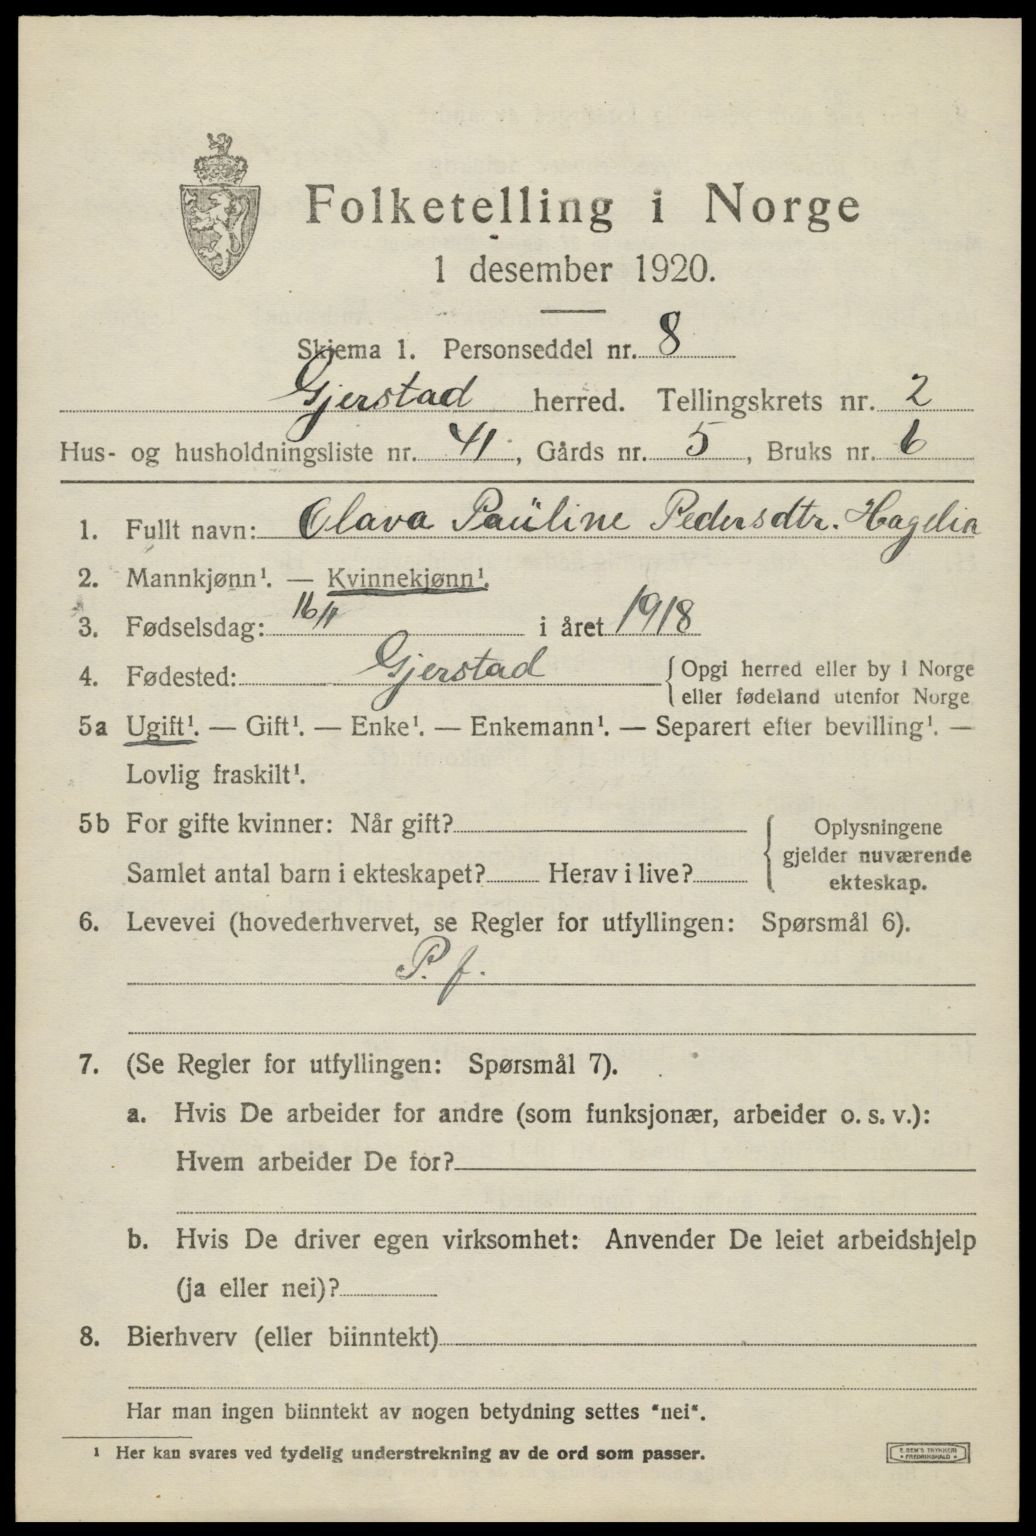 Folketelling i Norge
1 desember 1920.
Skjema 1. Personseddel nr. 8
Gjerstad herred. Tellingskrets nr. 2
Hus- og husholdningsliste nr. 41, Gårds nr. 5, Bruks nr. 6
1. Fullt navn: Olava Paüline Pedersdtr. Hagelia
2. Mannkjønn¹. — Kvinnekjønn¹.
3. Fødselsdag: 16/11 i året 1918
4. Fødested: Gjerstad { Opgi herred eller by i Norge
eller fødeland utenfor Norge
5a Ugift¹. — Gift¹. — Enke¹. — Enkemann¹. — Separert efter bevilling¹. —
Lovlig fraskilt¹.
5b For gifte kvinner: Når gift? { Oplysningene
gjelder nuværende
Samlet antal barn i ekteskapet? Herav i live? ekteskap.
6. Levevei (hovederhvervet, se Regler for utfyllingen: Spørsmål 6).
P. f.
7. (Se Regler for utfyllingen: Spørsmål 7).
a. Hvis De arbeider for andre (som funksjonær, arbeider o. s. v.):
Hvem arbeider De for?
b. Hvis De driver egen virksomhet: Anvender De leiet arbeidshjelp
(ja eller nei)?
8. Bierhverv (eller biinntekt)
Har man ingen biinntekt av nogen betydning settes "nei".
¹ Her kan svares ved tydelig understrekning av de ord som passer.
FREDRIKSHALD